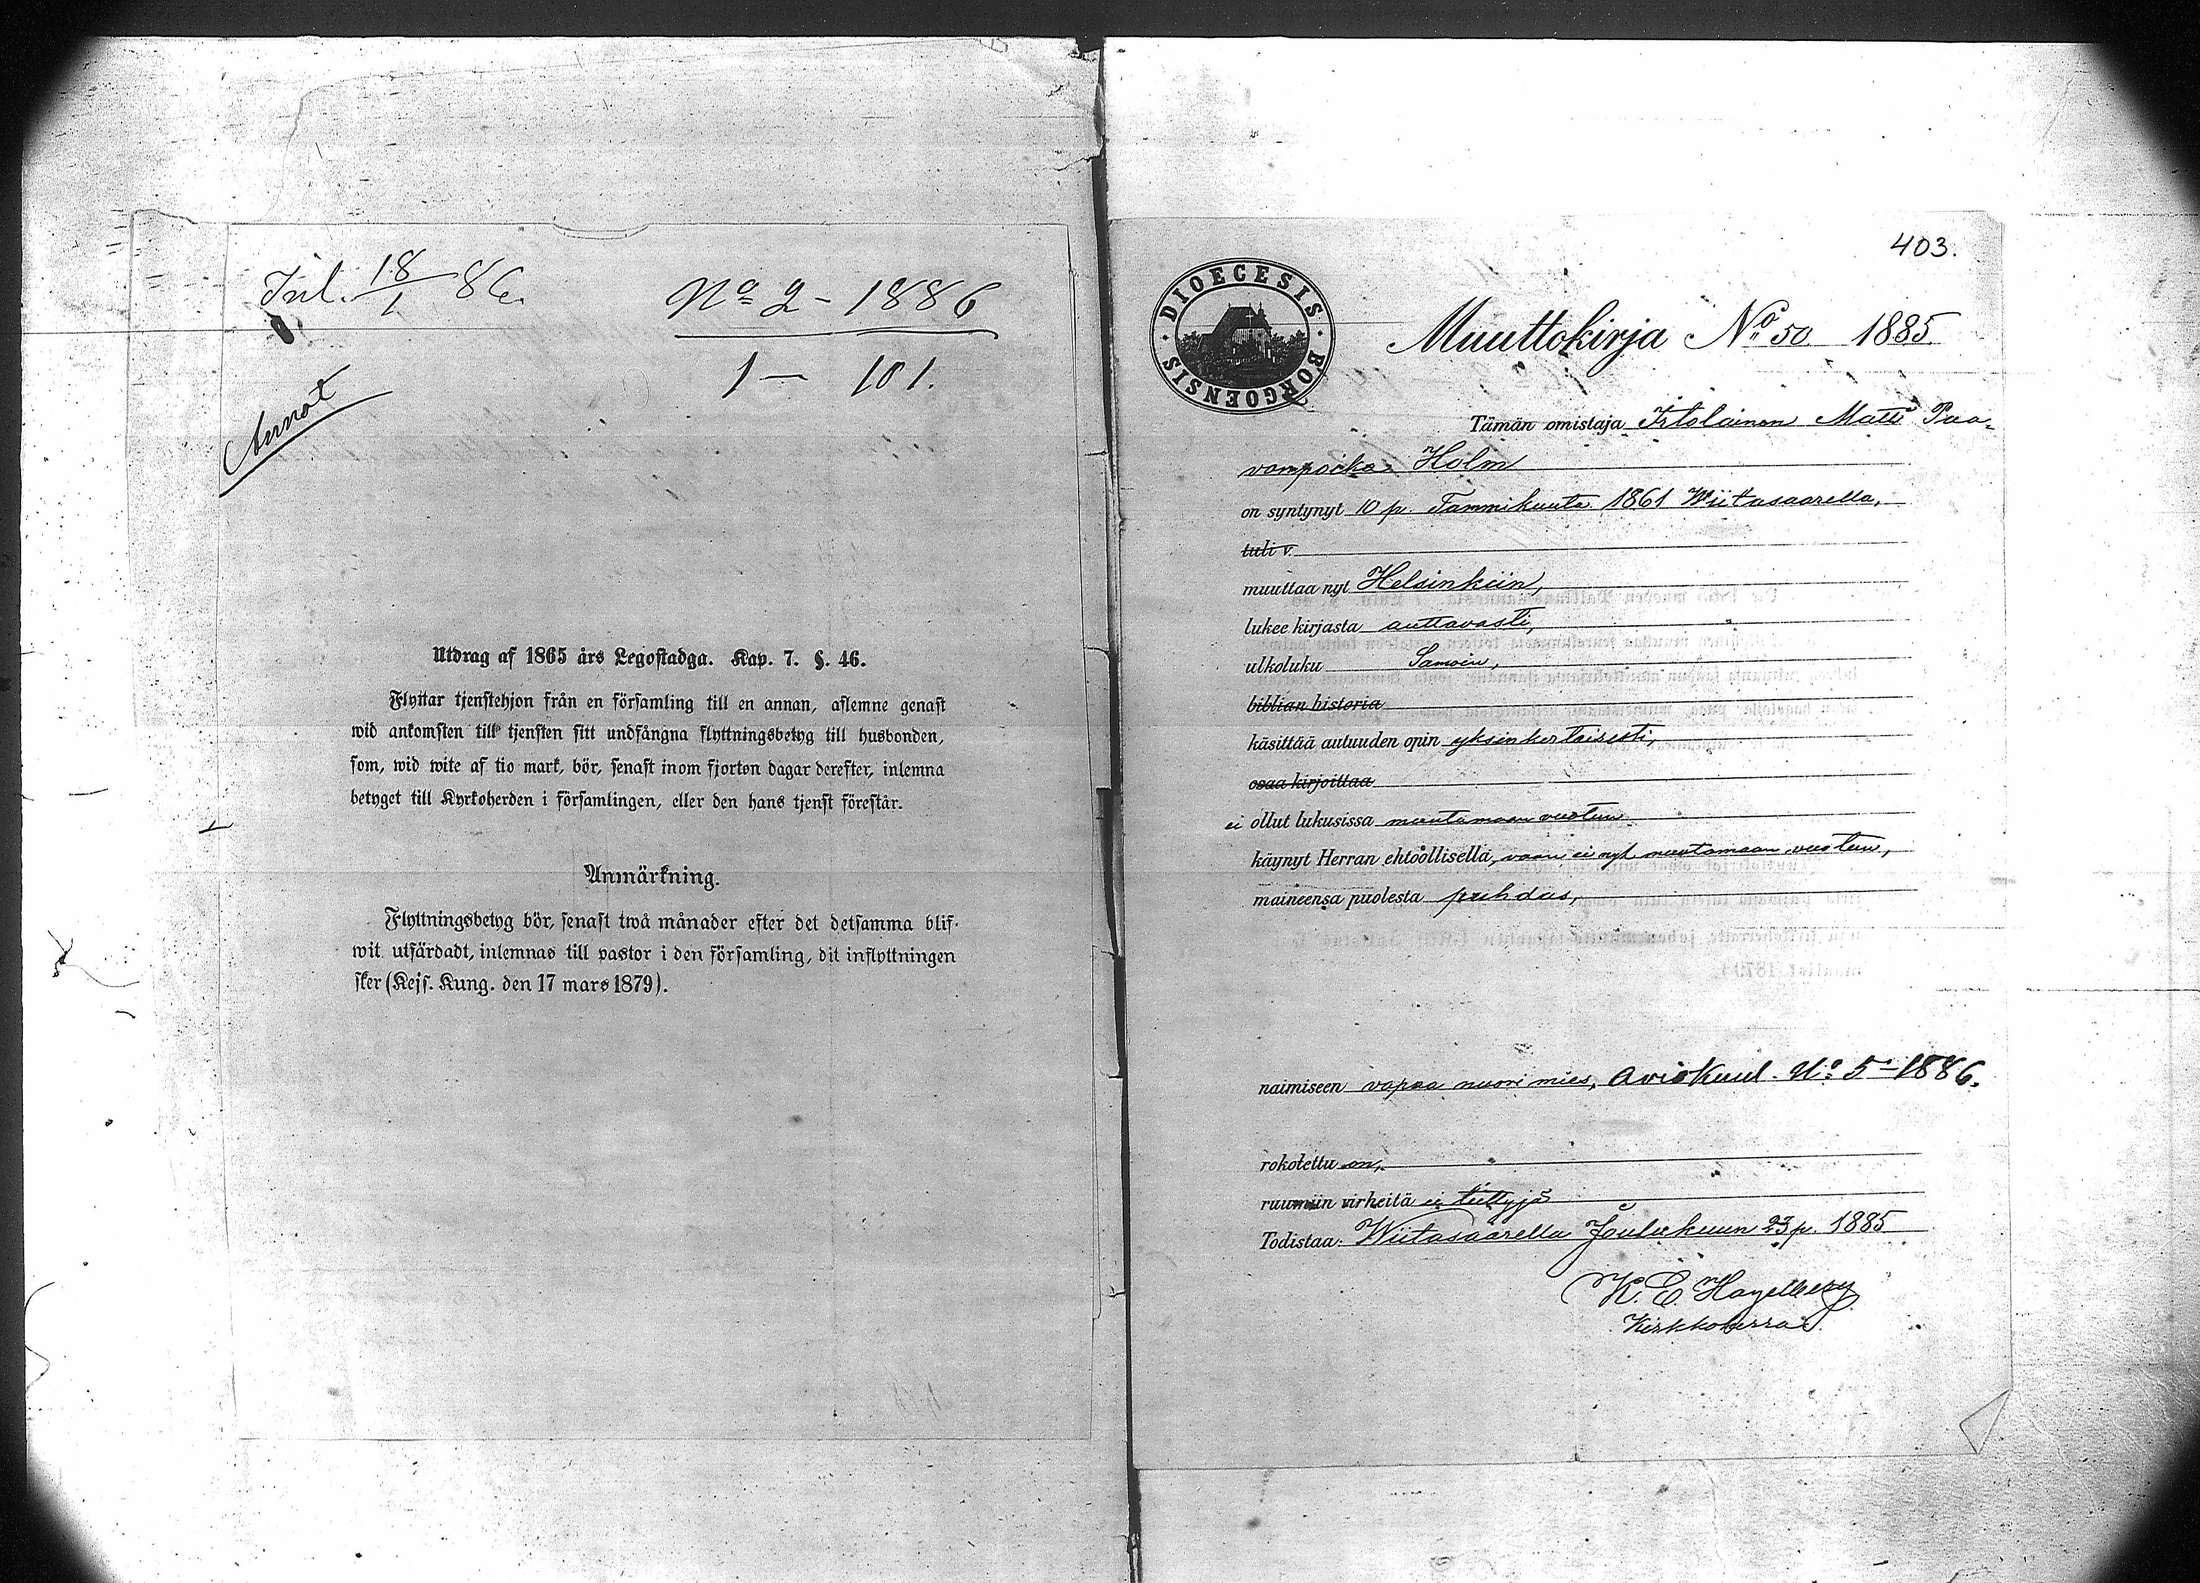 Inl. 18/1 86.
No 2 - 1886
1 — 101.
Annot
Utdrag af 1865 års Legostadga. Kap. 7. §. 46.
Flyttar tjenstehjon från en församling till en annan, aflemne genast
wid ankomsten till tjensten sitt undfångna flyttningsbetyg till husbonden,
som, wid wite af tio mark, bör, senast inom fjorton dagar derefter, inlemna
betyget till Kyrkoherden i församlingen, eller den hans tjenst förestår.
Anmärkning.
Flyttningsbetyg bör, senast två månader efter det detsamma blif-
wit utfärdadt, inlemnas till pastor i den församling, dit inflyttningen
sker (Kejs. Kung. den 17 mars 1879).
403.
DIOECESIS BORGOENSIS
Muuttokirja No 50 1885
Tämän omistaja Itolainen Matti Paa-
vompoika Holm
on syntynyt 10 p. Tammikuuta 1861 Wiitasaarella,
tuli v.
muuttaa nyt Helsinkiin,
lukee kirjasta auttavasti,
ulkoluku Samoin,
biblian historia
käsittää autuuden opin yksinkertaisesti,
osaa kirjoittaa
ei ollut lukusissa muutamaan vuoteen
käynyt Herran ehtoollisella, vaan ei nyt muutamaan vuoteen,
maineensa puolesta puhdas,
naimiseen vapaa nuori mies, Aviokuul. No 5 - 1886.
rokotettu on,
ruumiin virheitä ei tiettyjä
Todistaa: Wiitasaarella Joulukuun 23 p. 1885
K. E. Hagelberg
Kirkkoherra.